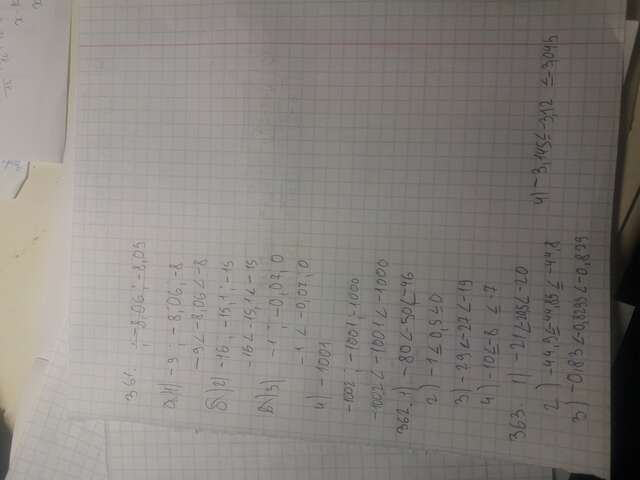 361. ; -8,06 ; -8,05
а)1) -9 ; -8,06 ; -8
-9 < -8,06 < -8
б)2) -16 ; -15,1 ; -15
-16 < -15,1 < -15
в)3) -1 ; -0,07, 0
-1 < -0,07, 0
4) -1001
-1002 ; -1001 ; -1000
-1002 < -1001 < -1000
362. 1) -80 < -50 < -46
2) -1 ≤ 0,5 ≤ 0
3) -29 < -27 < -19
4) -10 ≤ -8 ≤ -7
363. 1) -21 < < -20
2) -44,9 ≤ -44,85 ≤ -44,8
3) -0,83 < -0,8295 < -0,829
4) -3,145 ≤ -3,12 ≤ -3,095